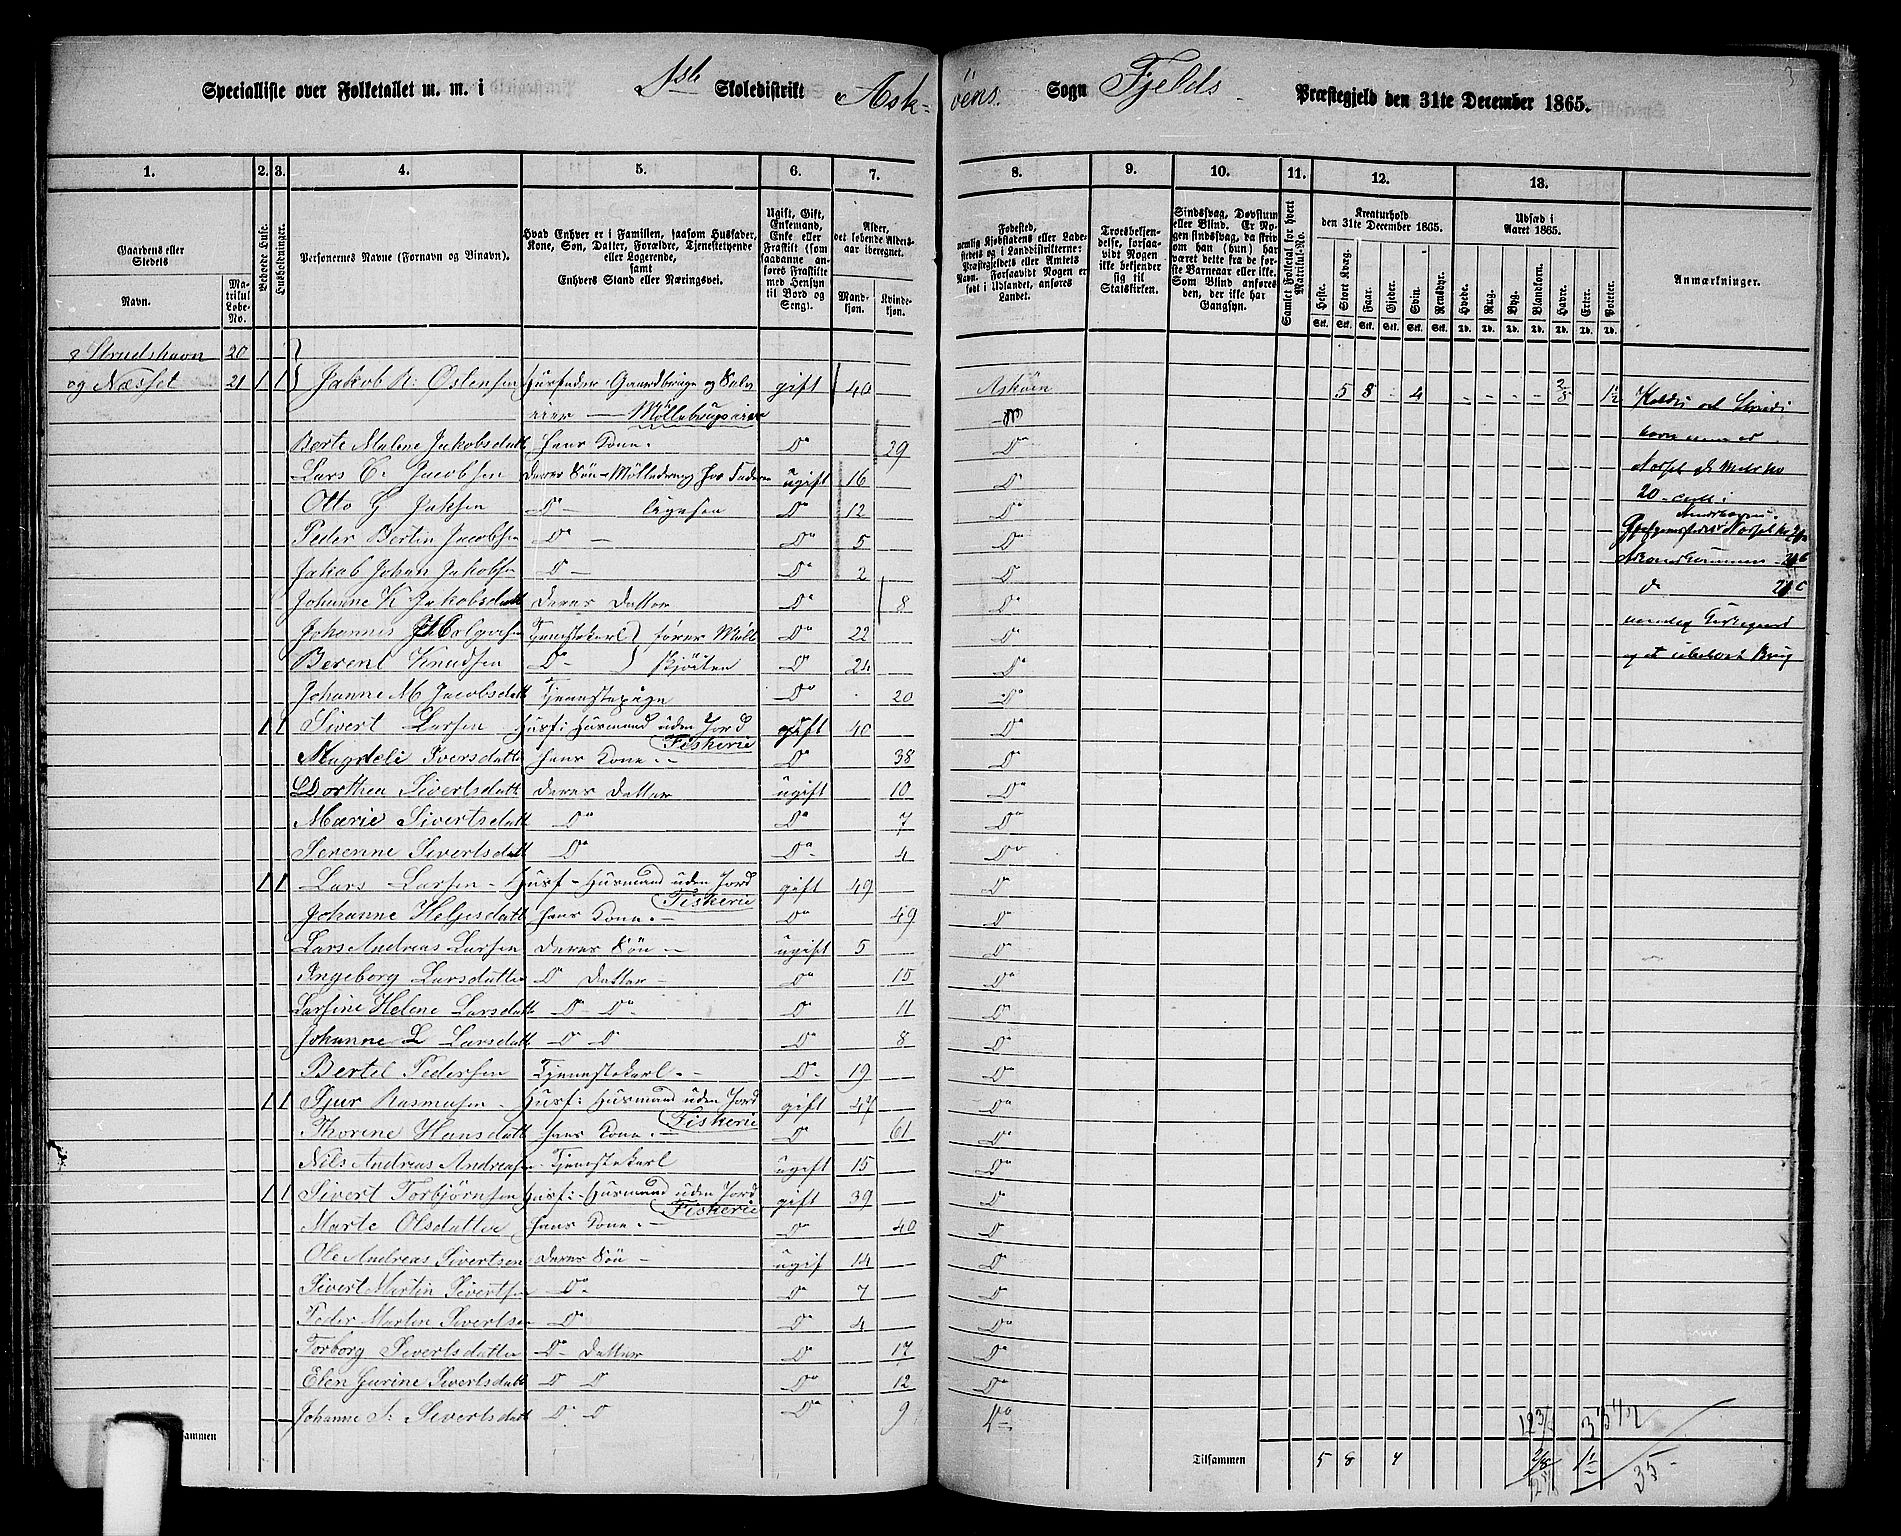 Specialliste over Folketallet m. m. i 1ste Skoledistrikt Askøens Sogn Fjelds Præstegjeld den 31te December 1865. 3
1. 2. 3. 4. 5. 6. 7. 8. 9. 10. 11. 12. 13.
Gaardens eller Stedets Navn. Matrikul Løbe-No. Beboede Huse. Husholdninger. Personernes Navne (Fornavn og Binavn). Hvad Enhver er i Familien, saasom Husfader, Kone, Søn, Datter, Forældre, Tjenestetyende eller Logerende, samt Enhvers Stand eller Næringsvei. Ugift, Gift, Enkemand, Enke eller Fraskilt (som saadanne anføres Fraskilte med Hensyn til Bord og Seng). Alder, det løbende Alders-aar iberegnet. Mandkjøn. Kvindekjøn.
Fødested, nemlig Kjøbstadens eller Ladestedets og i Landdistrikterne: Præstegjeldets eller Amtets Navn. Forsaavidt Nogen er født i Udlandet, anføres Landet. Troesbekjendelse, forsaavidt Nogen ikke bekjender sig til Statskirken. Sindssvag, Døvstum eller Blind. Er Nogen sindssvag, da skrives om han (hun) har været dette fra de første Barneaar eller ikke. Som Blind anføres den, der ikke har Gangsyn. Samlet Folketal for hvert Matrikul-No. Kreaturhold den 31te December 1865. Heste. Stort Kvæg. Faar. Gjeder. Svin. Rensdyr. Udsæd i Aaret 1865. Hvede. Rug. Byg. Blandkorn. Havre. Erter. Poteter. Anmærkninger.
Stk. Stk. Stk. Stk. Stk. Stk. Td. Td. Td. Td. Td. Td. Td.
Strudshavn 20
og Næsset 21 1 1 Jakob N: Østensen Husfader Gaardbruger og Selv gift 40 Askøen 5 8 - 4 - - - - 3/8 - 1½
eier — Møllebrugseier
Berte Malene Jakobsdatt hans Kone. D° 29 D°
Lars C. Jacobsen deres Søn - Mølledreng hos Faderen ugift 16 D°
Otto G Jaksen D° ligesen D° 12 D°
Peder Bertin Jacobsen D° — D° 5 D°
Jakob Johan Jakobsen D° — D° 2 D°
Johanne K Jakobsdatt deres Datter D° 8 D°
Johannes Tjenestekarl } fører Mølle D° 22 D°
Berent Knudsen D° } skjøiten D° 24 D°
Johanne M Jacobsdatt Tjenestepige D° 20 D°
1 1 Sivert Larsen Husf: Husmand uden Jord gift 40 D°
Fiskerie
Magdeli Iversdatte hans Kone. - 38 D°
Dorthea Sivertsdatt deres Datter ugift 10 D°
Marie Sivertsdatt D° D° 7 D°
Serenne Sivertsdatt D° D° 4 D°
1 1 Lars Larsen - Husf - Husmand uden Jord gift 49 D°
Fiskerie
Johanne Helgesdatt hans Kone. - D° 49 D°
Lars Andreas Larsen deres Søn — ugift 5 D°
Ingeborg Larsdatter D° Datter D° 15 D°
Larsine Helene Larsdatt D° D° D° 11 D°
Johanne L Larsdatt D° D° D° 8 D°
Bertil Pedersen Tjenestekarl. - D° 19 D°
1 1 Sjur Rasmusen - Husf: Husmand uden Jord gift 47 D°
Fiskerie
Thorine Hansdatt hans Kone. - D° 61 D°
Nils Andreas Andreasen Tjenstekarl ugift 15 D°
1 1 Sivert Torbjørnsen Husf: Husmand uden Jord gift 39 D°
Fiskerie
Marte Olsdatter hans Kone. - D° 40 D°
Ole Andreas Sivertsen deres Søn - ugif 14 D°
Sivert Martin Sivertsen D° D° 7 D°
Peder Martin Sivertsen D° D° 4 D°
Torborg Sivertsdatter D° Datter D° 17 D°
Elen Gurine Sivertsdatt D° D° D° 12 D°
Johanne S: Sivertsdatt D° D D° 9 D°
Tilsammen 5 8 4 3/8 1½ 35